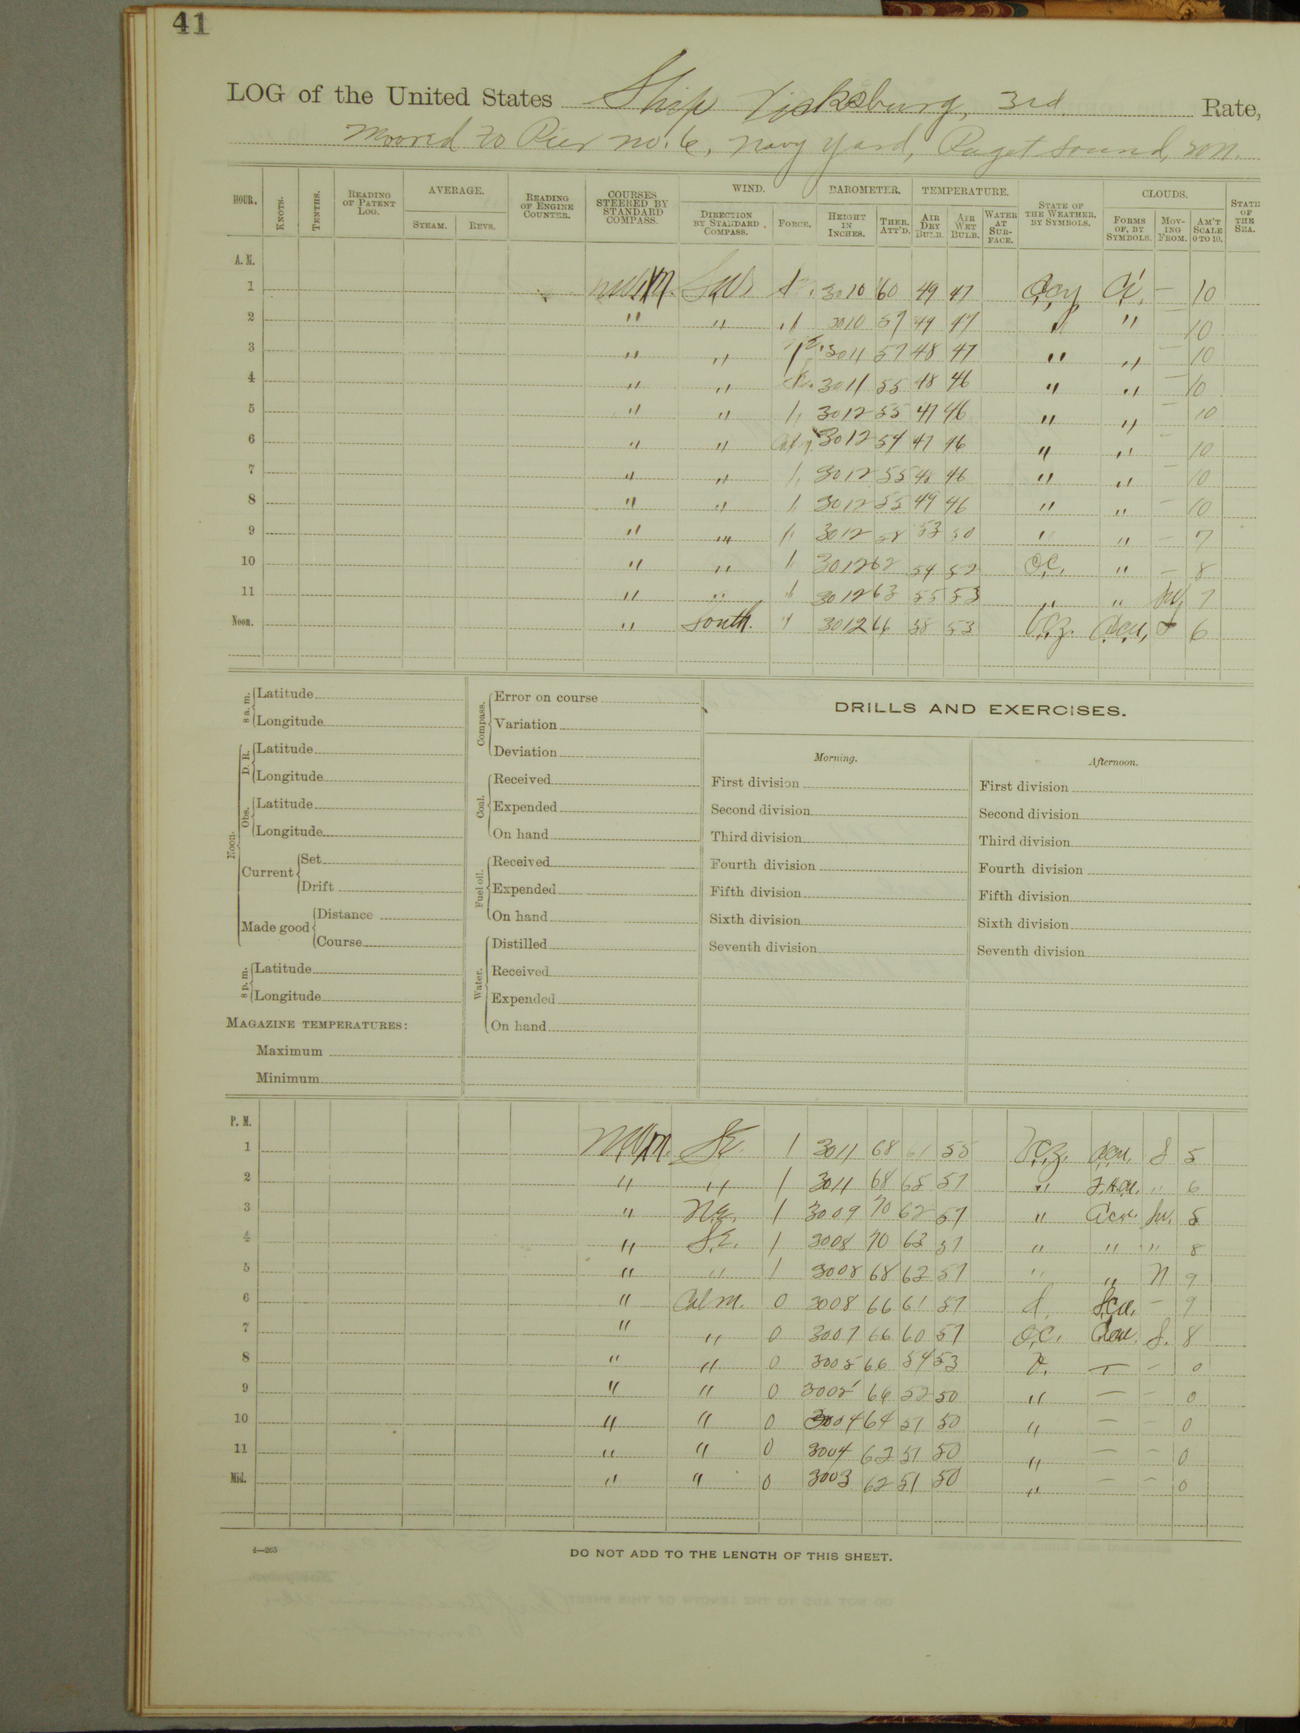 41
LOG of the United States Ship Vicksburg, 3rd Rate,
Moored to Pier No. 6, Navy Yard, Puget Sound, Wn.
HOUR. KNOTS. TENTHS. READING OF PATENT LOG. AVERAGE. STEAM. REVS. READING OF ENGINE COUNTER. COURSES STEERED BY STANDARD COMPASS. WIND. DIRECTION BY STANDARD COMPASS. FORCE. BAROMETER. HEIGHT IN INCHES. THER. ATT'D. TEMPERATURE. AIR DRY BULB. AIR WET BULB. WATER AT SURFACE. STATE OF THE WEATHER, BY SYMBOLS. CLOUDS. FORMS OF, BY SYMBOLS. MOVING FROM. AM'T SCALE 0 TO 10. STATE OF THE SEA.
A. M.
1 3010 60 49 47 — 10
2 " " 3010 57 49 47 " " 10
3 " " 3011 57 48 47 " " — 10
4 " " 3011 55 48 46 " " — 10
5 " " 1 3012 55 47 46 " " — 10
6 " " 3012 54 47 46 " " — 10
7 " " 1 3012 55 48 46 " " — 10
8 " " 1 3012 55 49 46 " " — 10
9 " " 1 3012 58 53 50 " " — 7
10 " " 1 3012 62 54 52 O.C. " — 8
11 " " 1 3012 63 55 53 " " 7
Noon. " South. 3012 66 58 53 6
8 a. m. Latitude
Longitude
Noon. D. R. Latitude
Longitude
Obs. Latitude
Longitude
Current Set
Drift
Made good Distance
Course
8 p. m. Latitude
Longitude
MAGAZINE TEMPERATURES:
Maximum
Minimum
Compass. Error on course
Variation
Deviation
Coal. Received
Expended
On hand
Fuel oil. Received
Expended
On hand
Water. Distilled
Received
Expended
On hand
DRILLS AND EXERCISES.
Morning.
First division
Second division
Third division
Fourth division
Fifth division
Sixth division
Seventh division
Afternoon.
First division
Second division
Third division
Fourth division
Fifth division
Sixth division
Seventh division
P. M.
1 SE. 1 3011 68 61 55 S 5
2 " " 1 3011 68 65 57 " " 6
3 " NE. 1 3009 70 62 57 " 5
4 " SE. 1 3008 70 63 57 " " " 8
5 " " 1 3008 68 62 57 " " N 9
6 " Calm. 0 3008 66 61 57 — 9
7 " " 0 3007 66 60 57 O.C. S. 8
8 " " 0 3005 66 54 53 — — 0
9 " " 0 3005 64 52 50 " — — 0
10 " " 0 3004 64 51 50 " — — 0
11 " " 0 3004 62 51 50 " — — 0
Mid. " " 0 3003 62 51 50 " — — 0
4—265
DO NOT ADD TO THE LENGTH OF THIS SHEET.